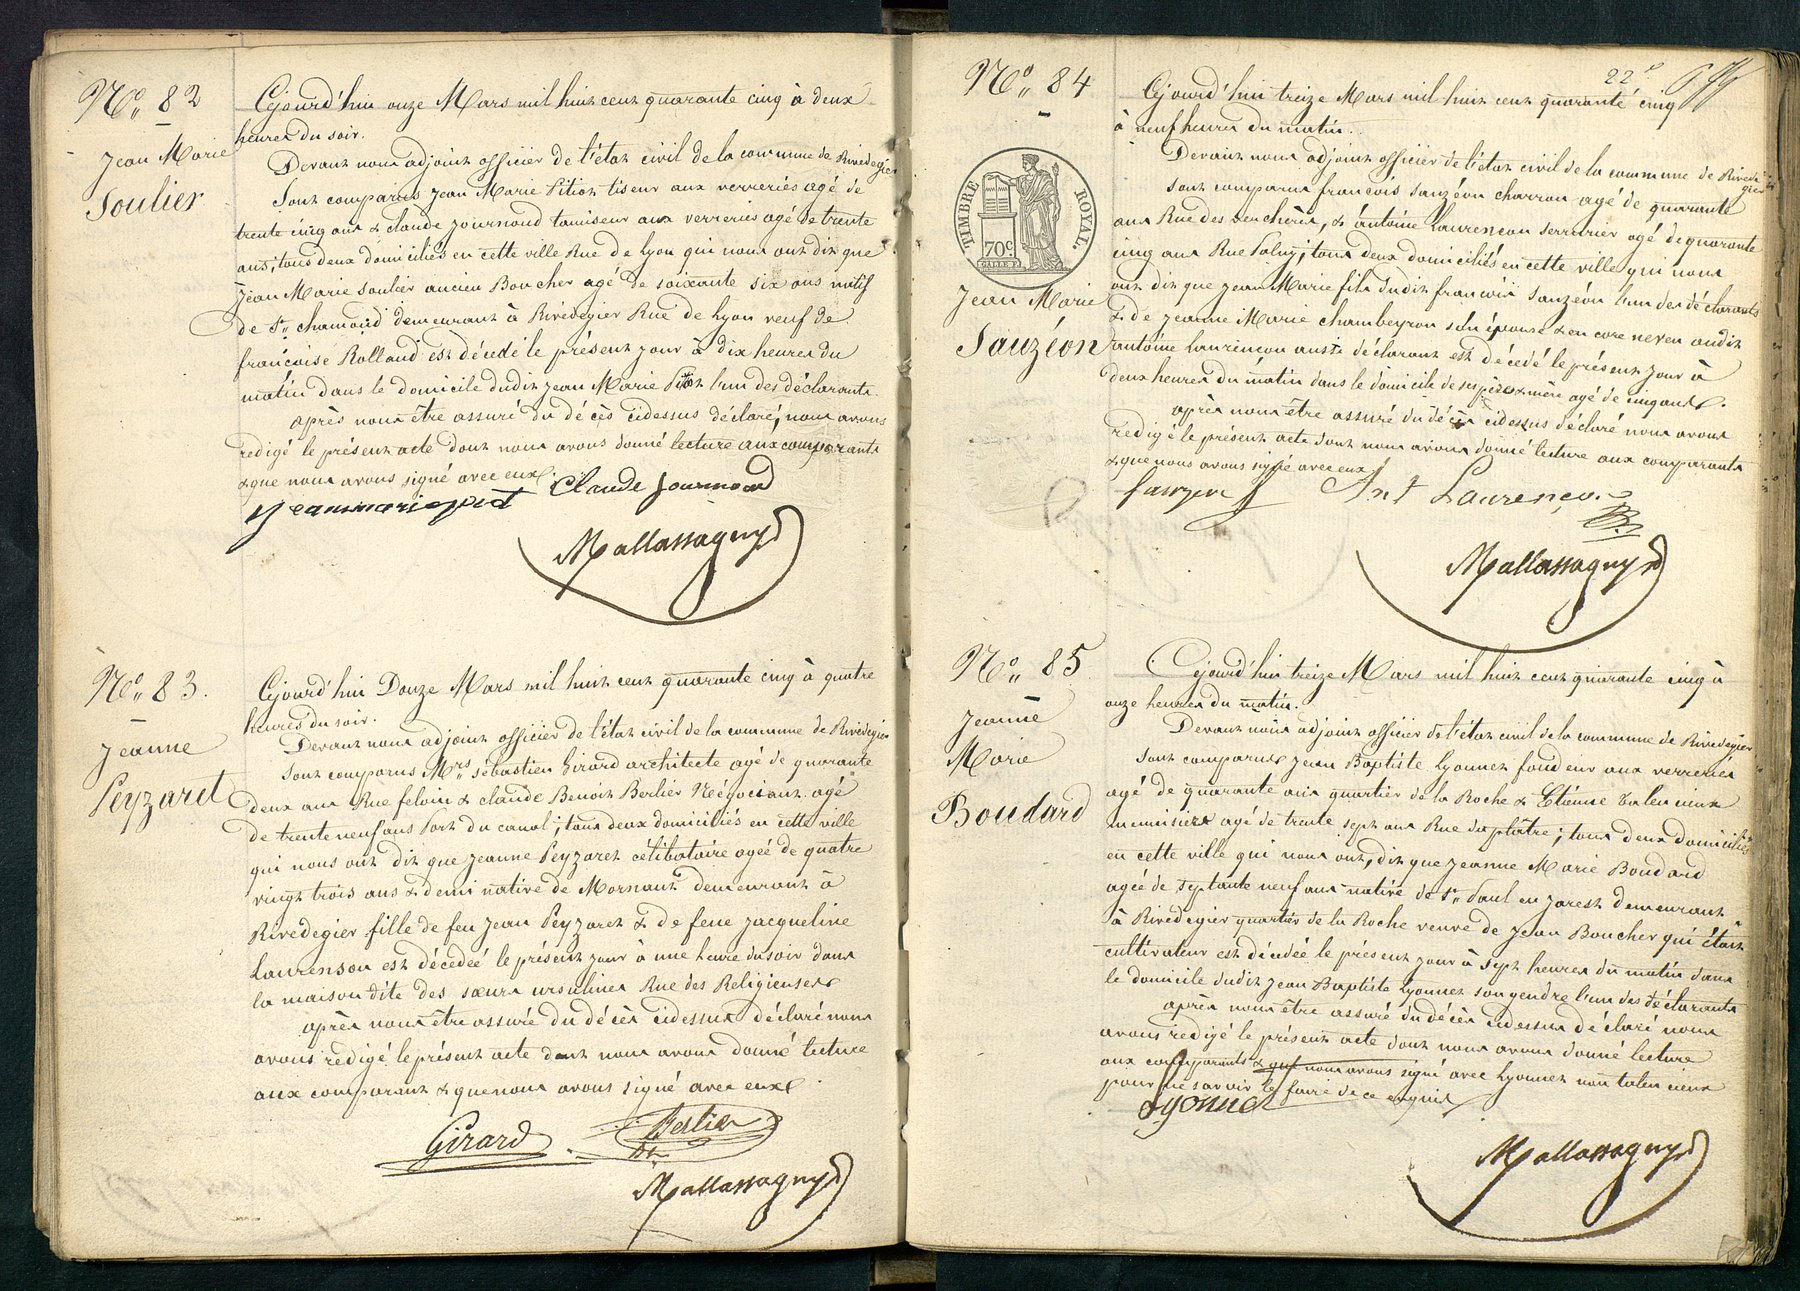 N° 82
Jean Marie
Soulier
Cejourd'hui onze Mars mil huit cent quarante cinq à deux
heures du soir.
Devant nous adjoint officier de l'état civil de la commune de Rivedegier
Sont comparus Jean Marie Pitiot tiseur aux verreries agé de
trente cinq ans & claude Journoud tamiseur aux verreries agé de trente
ans, tous deux domiciliés en cette ville Rue de Lyon qui nous ont dit que
Jean Marie Soulier ancien Boucher agé de soixante six ans natif
de St. chamond demeurant à Rivedegier Rue de Lyon veuf de
françoise Rolland est décédé le présent jour à dix heures du
matin dans le domicile dudit Jean Marie Pitiot l'un des déclarants
après nous être assuré du décès cidessus déclaré, nous avons
redigé le présent acte dont nous avons donné lecture aux comparants
& que nous avons signé avec eux.
Claude Journoud
Mallassagny
N° 83.
Jeanne
Peyzaret
Cejourd'hui Douze Mars mil huit cent quarante cinq à quatre
heures du soir.
Devant nous adjoint officier de l'état civil de la commune de Rivedegier
Sont comparus Mrs. Sébastien Girard architecte agé de quarante
deux ans Rue feloin & claude Benoit Berlier Négociant agé
de trente neuf ans Port du canal; tous deux domiciliés en cette ville
qui nous ont dit que Jeanne Peyzaret célibataire agée de quatre
vingt trois ans & demi native de Mornant demeurant à
Rivedegier fille de feu Jean Peyzaret & de feue Jacqueline
Laurenson est décédée le présent jour à une heure du soir dans
la maison dite des sœurs ursulines Rue des Religieuses
après nous être assuré du décès cidessus déclaré nous
avons rédigé le présent acte dont nous avons donné lecture
aux comparant & que nous avons signé avec eux
Girard
Berlier
Mallassagny
22e
N° 84
TIMBRE ROYAL.
70c.
Jean Marie
Sauzéon
Cejourd'hui treize Mars mil huit cent quarante cinq
à neuf heures du matin.
Devant nous adjoint officier de l'état civil de la commune de Rivedegier
sont comparus françois Sauzéon charron agé de quarante
ans Rue des vercheres, & antoine Laurençon serrurier agé de quarante
cinq ans Rue Paluy; tous deux domiciliés en cette ville qui nous
ont dit que Jean Marie fils dudit françois Sauzéon l'un des déclarants
& de Jeanne Marie chambeyron son épouse & encore neveu audit
antoine Laurençon aussi déclarant est décédé le présent jour à
deux heures du matin dans le domicile de ses père & mère agé de cinq ans.
après nous être assuré du décès cidessus déclaré nous avons
redigé le présent acte dont nous avons donné lecture aux comparants
& que nous avons signé avec eux
Sauzeon
Ant Laurençon
Mallassagny
N° 85
Jeanne
Marie
Boudard
Cejourd'hui treize Mars mil huit cent quarante cinq à
onze heures du matin.
Devant nous adjoint officier de l'état civil de la commune de Rivedegier
sont comparus Jean Baptiste Lyonnet fondeur aux verreries
agé de quarante ans quartier de la Roche & Etienne Valencieux
menuisier agé de trente sept ans Rue du plâtre; tous deux domiciliés
en cette ville qui nous ont, dit que Jeanne Marie Boudard
agée de septante neuf ans native de St. Paul en Jarest demeurant
à Rivedegier quartier de la Roche veuve de Jean Boucher qui était
cultivateur est décédée le présent jour à sept heures du matin dans
le domicile dudit Jean Baptiste Lyonnet son gendre l'un des déclarants
après nous être assuré du décès cidessus déclaré nous
avons redigé le présent acte dont nous avons donné lecture
aux comparants & que nous avons signé avec Lyonnet non Valencieux
pour ne savoir le faire de ce enquis
Lyonnet
Mallassagny